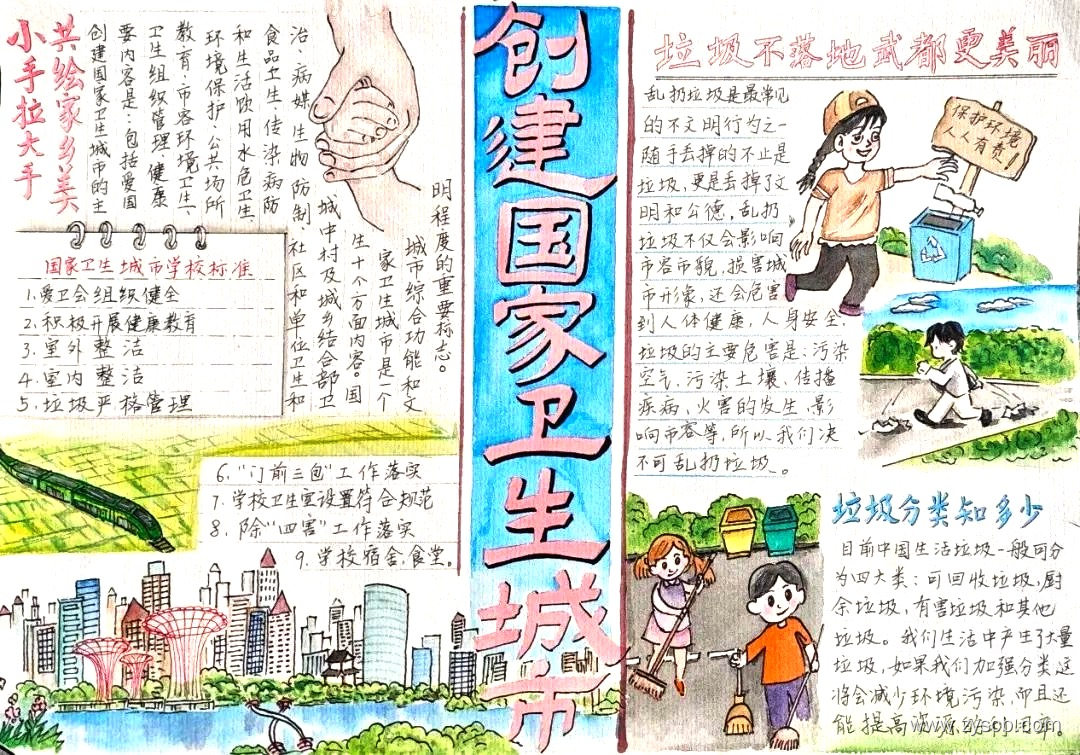 小手拉大手
共绘家乡美
创建国家卫生城市的主
要内容是：包括爱国
卫生组织管理、健康
教育、市容环境卫生、
环境保护、公共场所
和生活饮用水危卫生、
食品卫生、传染病防
治、病媒生物防制、社区和单位卫生和
城中村及城乡结合部卫
生十个方面内容。国
家卫生城市是一个
城市综合功能和文
明程度的重要标志。
国家卫生城市学校标准
1.爱卫会组织健全
2.积极开展健康教育
3.室外整洁
4.室内整洁
5.垃圾严格管理
6."门前三包"工作落实
7.学校卫生室设置符合规范
8.除"四害"工作落实
9.学校宿舍,食堂。
创建国家卫生城市
垃圾不落地武都更美丽
乱扔垃圾是最常见
的不文明行为之一
随手丢掉的不止是
垃圾,更是丢掉了文
明和公德,乱扔
垃圾不仅会影响
市容市貌,损害城
市形象,还会危害
到人体健康,人身安全.
垃圾的主要危害是:污染
空气,污染土壤,传播
疾病,火害的发生,影
响市容等,所以我们决
不可乱扔垃圾。
保护环境
人人有责!
垃圾分类知多少
目前中国生活垃圾一般可分
为四大类:可回收垃圾,厨
余垃圾,有害垃圾和其他
垃圾。我们生活中产生了大量
垃圾,如果我们加强分类这
将会减少环境污染,而且还
能提高资源的利用率。